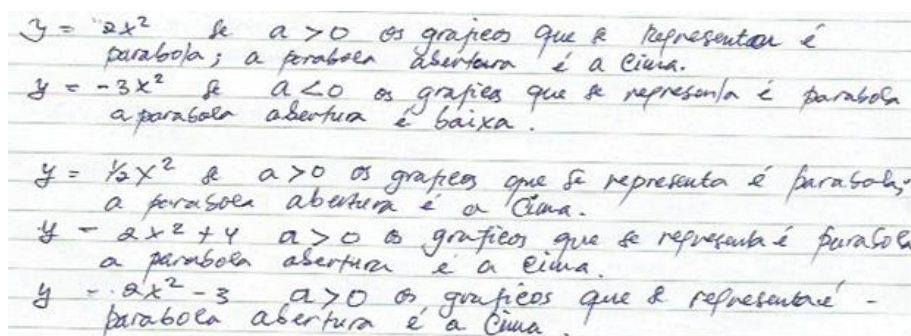 y = 2x² se a > 0 os graficos que se representou é
parabola; a parabola abertura é a cima.
y = -3x² se a < 0 os grafica que se representa é parabola
a parabola abertura é baixa.
y = ½x² se a > 0 os graficos que se representa é parabola;
a parabola abertura é a cima.
y = 2x² + 4 a > 0 os graficos que se representa é parabola
a parabola abertura é a cima.
y = 2x² - 3 a > 0 os graficos que se representa é -
parabola abertura é a cima.